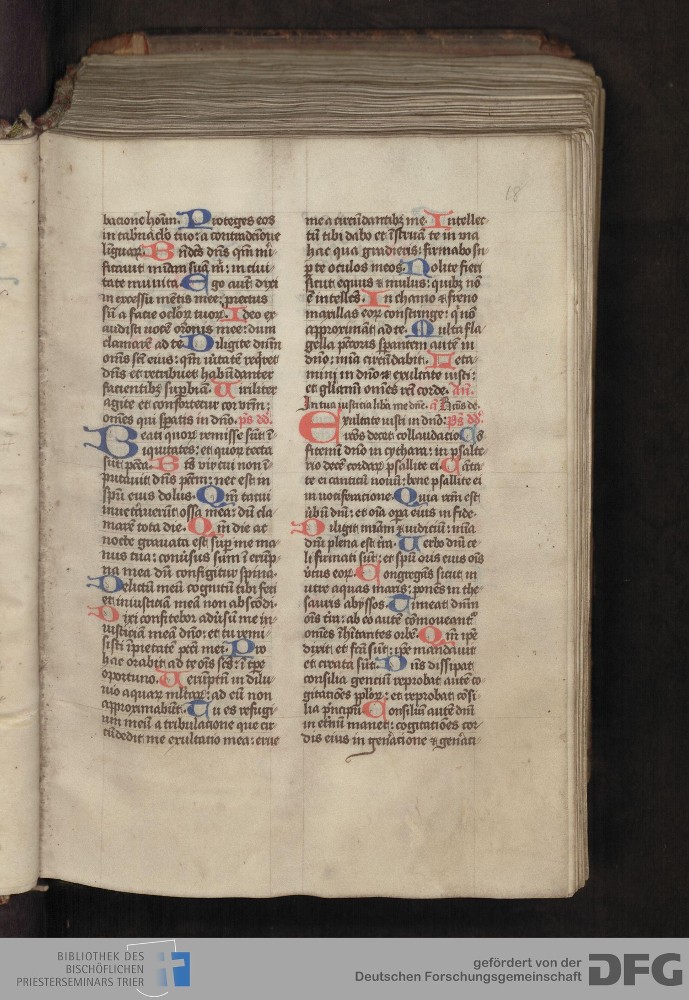 18
bacione hoīm. Proteges eos
in tabnaclo tuo: a contradictione
linguaꝝ. Bn̄dcs dn̄s qm̄ mi
ficauit mīam suā m̄: in ciui
tate munita. Ego aut̄ dixi
in excessu mētis mee: proiectus
sū a facie oclorꝝ tuorꝝ. Ideo ex
audisti vocē or̄onis mee: dum
clamarē ad te. Diligite dn̄m
om̄s sc̄i eius: qm̄ v̄itatē reqret
dn̄s et retribuet habūdanter
facientibꝫ suꝑbiā. Viriliter
agite et confortetur cor vr̄m:
om̄es qui sꝑatis in dn̄o. ps dd.
Beati quorꝝ remisse sūt ī
iquitates: et quorꝝ tecta
sūt pc̄ca. Bt̄s vir cui non ī
putauit dn̄s pc̄m: nec est in
spū eius dolus. Qm̄ tacui
inueterauerūt ossa mea: dū cla
marē tota die. Qm̄ die ac
nocte grauata est suꝑ me ma
nus tua: conūsus sum ī erūp
na mea dū configitur spina.
Delictū meū cognitū tibi feci
et iniusticiā meā non abscōdi.
Dixi confitebor adūsū me in
iusticiam meā dn̄o: et tu remi
sisti īpietatē pc̄ci mei. Pro
hac orabit ad te om̄s sc̄s: ī tp̄e
oportuno. Verūptn̄ in dilu
uio aquarꝝ mltarꝝ: ad eū non
approximabūt. Tu es refugi
um meū a tribulacione que cir
cūdedit me exultatio mea: erue
me a circūdantibꝫ me. Intellec
tū tibi dabo et īstruā te in via
hac qua gradieris: firmabo su
ꝑ te oculos meos. Nolite fieri
sicut equus et mulus: quibꝫ nō
ē intellcs. In chamo et freno
maxillas eorꝝ constringe: q nō
approximāt ad te. Multa fla
gella pccoris sꝑantem autē in
dn̄o: mīa circūdabit. Leta
mini in dn̄o et exultate iusti:
et gl̄iamī om̄es rc̄i corde. an̄.
In tua iusticia libā me dn̄e. Rc̄os de.
Exultate iusti in dn̄o: ps dd.
rc̄os decet collaudatio. Cō
fitemī dn̄o in cythara: in psalte
rio decē cordarꝝ psallite ei. Cāta
te ei canticū nouū: bene psallite ei
in vociferacione. Quia rcm̄ est
v̄bū dn̄i: et oīa oꝑa eius in fide.
Diligit mīam et iudiciū: mīa
dn̄i plena est tr̄a. Verbo dn̄i ce
li firmati sūt: et spū oris eius oīs
v̄tus eorꝝ. Congregās sicut in
utre aquas maris: ponēs in the
sauris abyssos. Timeat dn̄m
oīs tr̄a: ab eo autē cōmoueant̄
om̄es īhitantes orbē. Qm̄ ipe
dixit et fc̄a sūt: ipe mandauit
et creata sūt. Dn̄s dissipat
consilia genciū reprobat autē co
gitacōes pplorꝝ: et reprobat cōsi
lia pncipū. Consiliū autē dn̄i
in etn̄ū manet: cogitacōes cor
dis eius in gen̄acione et gen̄aci
BIBLIOTHEK DES
BISCHÖFLICHEN
PRIESTERSEMINARS TRIER
gefördert von der
Deutschen Forschungsgemeinschaft
DFG